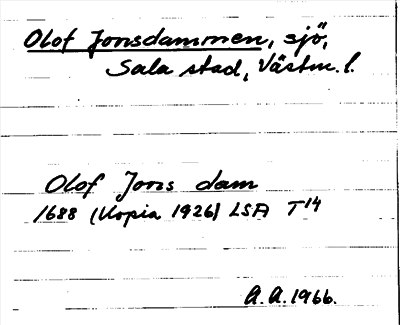 Olof Jonsdammen, sjö,
Sala stad, Västm. l.
Olof Jons dam
1688 (Kopia 1926) LSA T14
A.A. 1966.